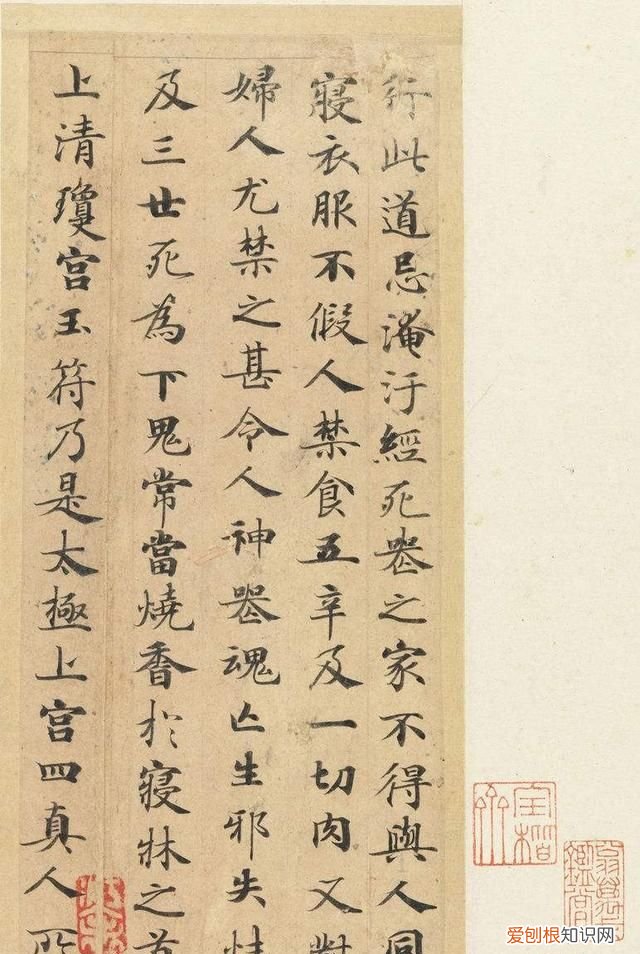 行此道忌淹汙經死喪之家不得與人同
寢衣服不假人禁食五辛及一切肉又對
婦人尤禁之甚令人神喪魂亡生邪失性
及三世死為下鬼常當燒香於寢牀之首
上清瓊宮玉符乃是太極上宮四真人所
爱刨根知识网